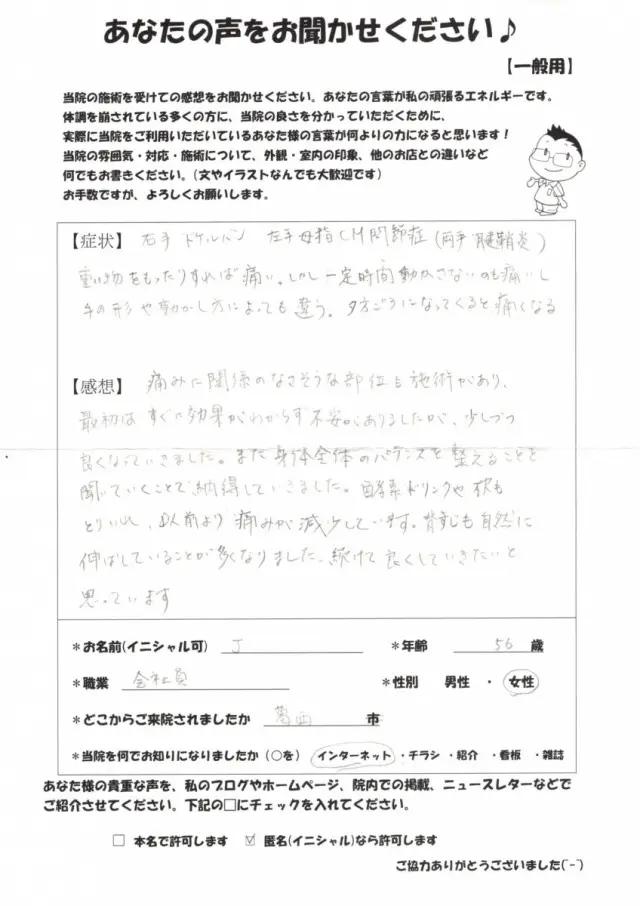 あなたの声をお聞かせください♪
【一般用】
当院の施術を受けての感想をお聞かせください。あなたの言葉が私の頑張るエネルギーです。
体調を崩されている多くの方に、当院の良さを分かっていただくために、
実際に当院をご利用いただいているあなた様の言葉が何よりの力になると思います！
当院の雰囲気・対応・施術について、外観・室内の印象、他のお店との違いなど
何でもお書きください。（文やイラストなんでも大歓迎です）
お手数ですが、よろしくお願いします。
【症状】 右手 ドケルバン 左手母指CM関節症（両手 腱鞘炎）
重い物をもったりすれば痛い。しかし一定時間動かさないのも痛いし
手の形や動かし方によっても違う。夕方ごろになってくると痛くなる
【感想】 痛みに関係のなさそうな部位も施術があり、
最初はすぐに効果がわからず不安がありましたが、少しづつ
良くなっていきました。また身体全体のバランスを整えることを
聞いていくことで納得していきました。酵素ドリンクや枕も
とりいれ、以前より痛みが減少しています。背すじも自然に
伸ばしていることが多くなりました。続けて良くしていきたいと
思っています
＊お名前(イニシャル可) J ＊年齢 56 歳
＊職業 会社員 ＊性別 男性 ・ 女性
＊どこからご来院されましたか 葛西 市
＊当院を何でお知りになりましたか（○を） インターネット ・チラシ ・紹介 ・看板 ・雑誌
あなた様の貴重な声を、私のブログやホームページ、院内での掲載、ニュースレターなどで
ご紹介させてください。下記の□にチェックを入れてください。
□ 本名で許可します ☑ 匿名(イニシャル)なら許可します
ご協力ありがとうございました(^-^)